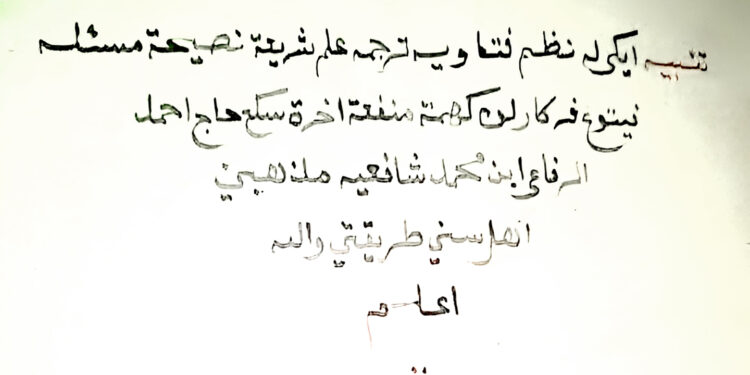 تنبيه ايكى له نظم فتاويه ترجمه علم شريعة نصيحة مسئله
نيتوع فه كارلون كهمتة منفعة اخرة سكع حاج احمد
الرفاعى ابن محمد شافعيه مذهبى
اهل سني طريقتي والله
اعلم